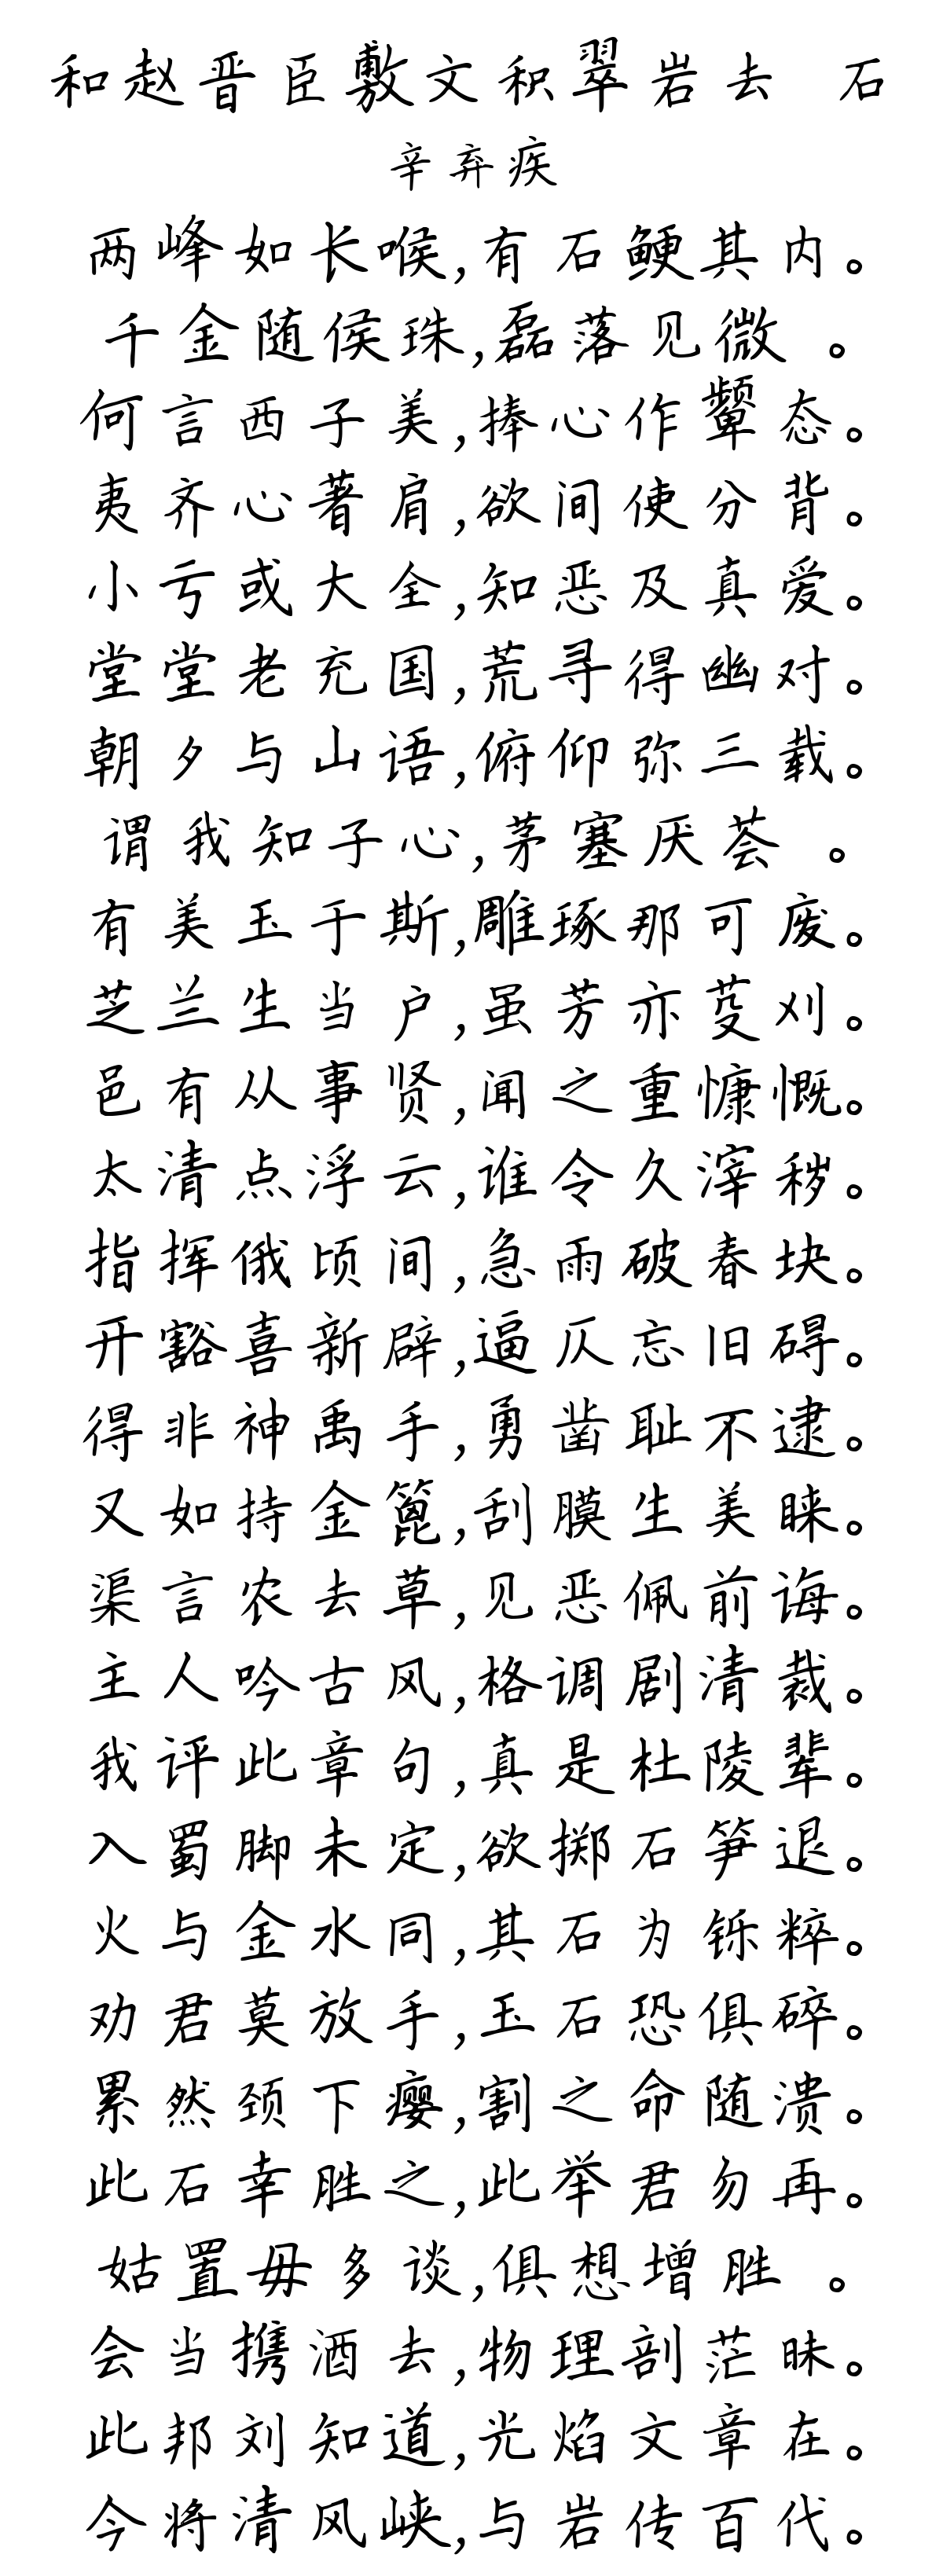 和赵晋臣敷文积翠岩去 石
辛弃疾
两峰如长喉,有石鲠其内。
千金随侯珠,磊落见微 。
何言西子美,捧心作颦态。
夷齐心著肩,欲间使分背。
小亏或大全,知恶及真爱。
堂堂老充国,荒寻得幽对。
朝夕与山语,俯仰弥三载。
谓我知子心,茅塞厌荟 。
有美玉于斯,雕琢那可废。
芝兰生当户,虽芳亦芟刈。
邑有从事贤,闻之重慷慨。
太清点浮云,谁令久滓秽。
指挥俄顷间,急雨破春块。
开豁喜新辟,逼仄忘旧碍。
得非神禹手,勇凿耻不逮。
又如持金篦,刮膜生美睐。
渠言农去草,见恶佩前诲。
主人吟古风,格调剧清裁。
我评此章句,真是杜陵辈。
入蜀脚未定,欲掷石笋退。
火与金水同,其石为铄粹。
劝君莫放手,玉石恐俱碎。
累然颈下瘿,割之命随溃。
此石幸胜之,此举君勿再。
姑置毋多谈,俱想增胜 。
会当携酒去,物理剖茫昧。
此邦刘知道,光焰文章在。
今将清风峡,与岩传百代。